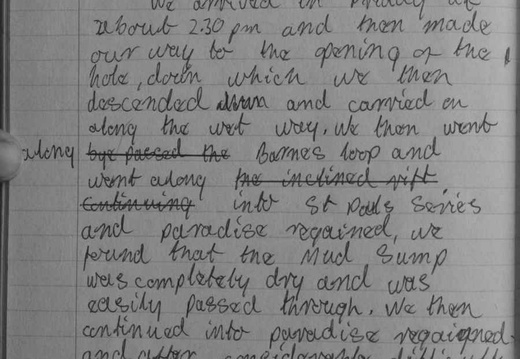 We arrived on Friday at
about 2.30 pm and then made
our way to the opening of the
hole, down which we then
descended and carried on
along the wet way. We then went
along bye passed the Barnes loop and
went along the inclined rift
continuing into St Pauls Series
and paradise regained, we
found that the Mud Sump
was completely dry and was
easily passed through. We then
continued into paradise regained
and after considerable